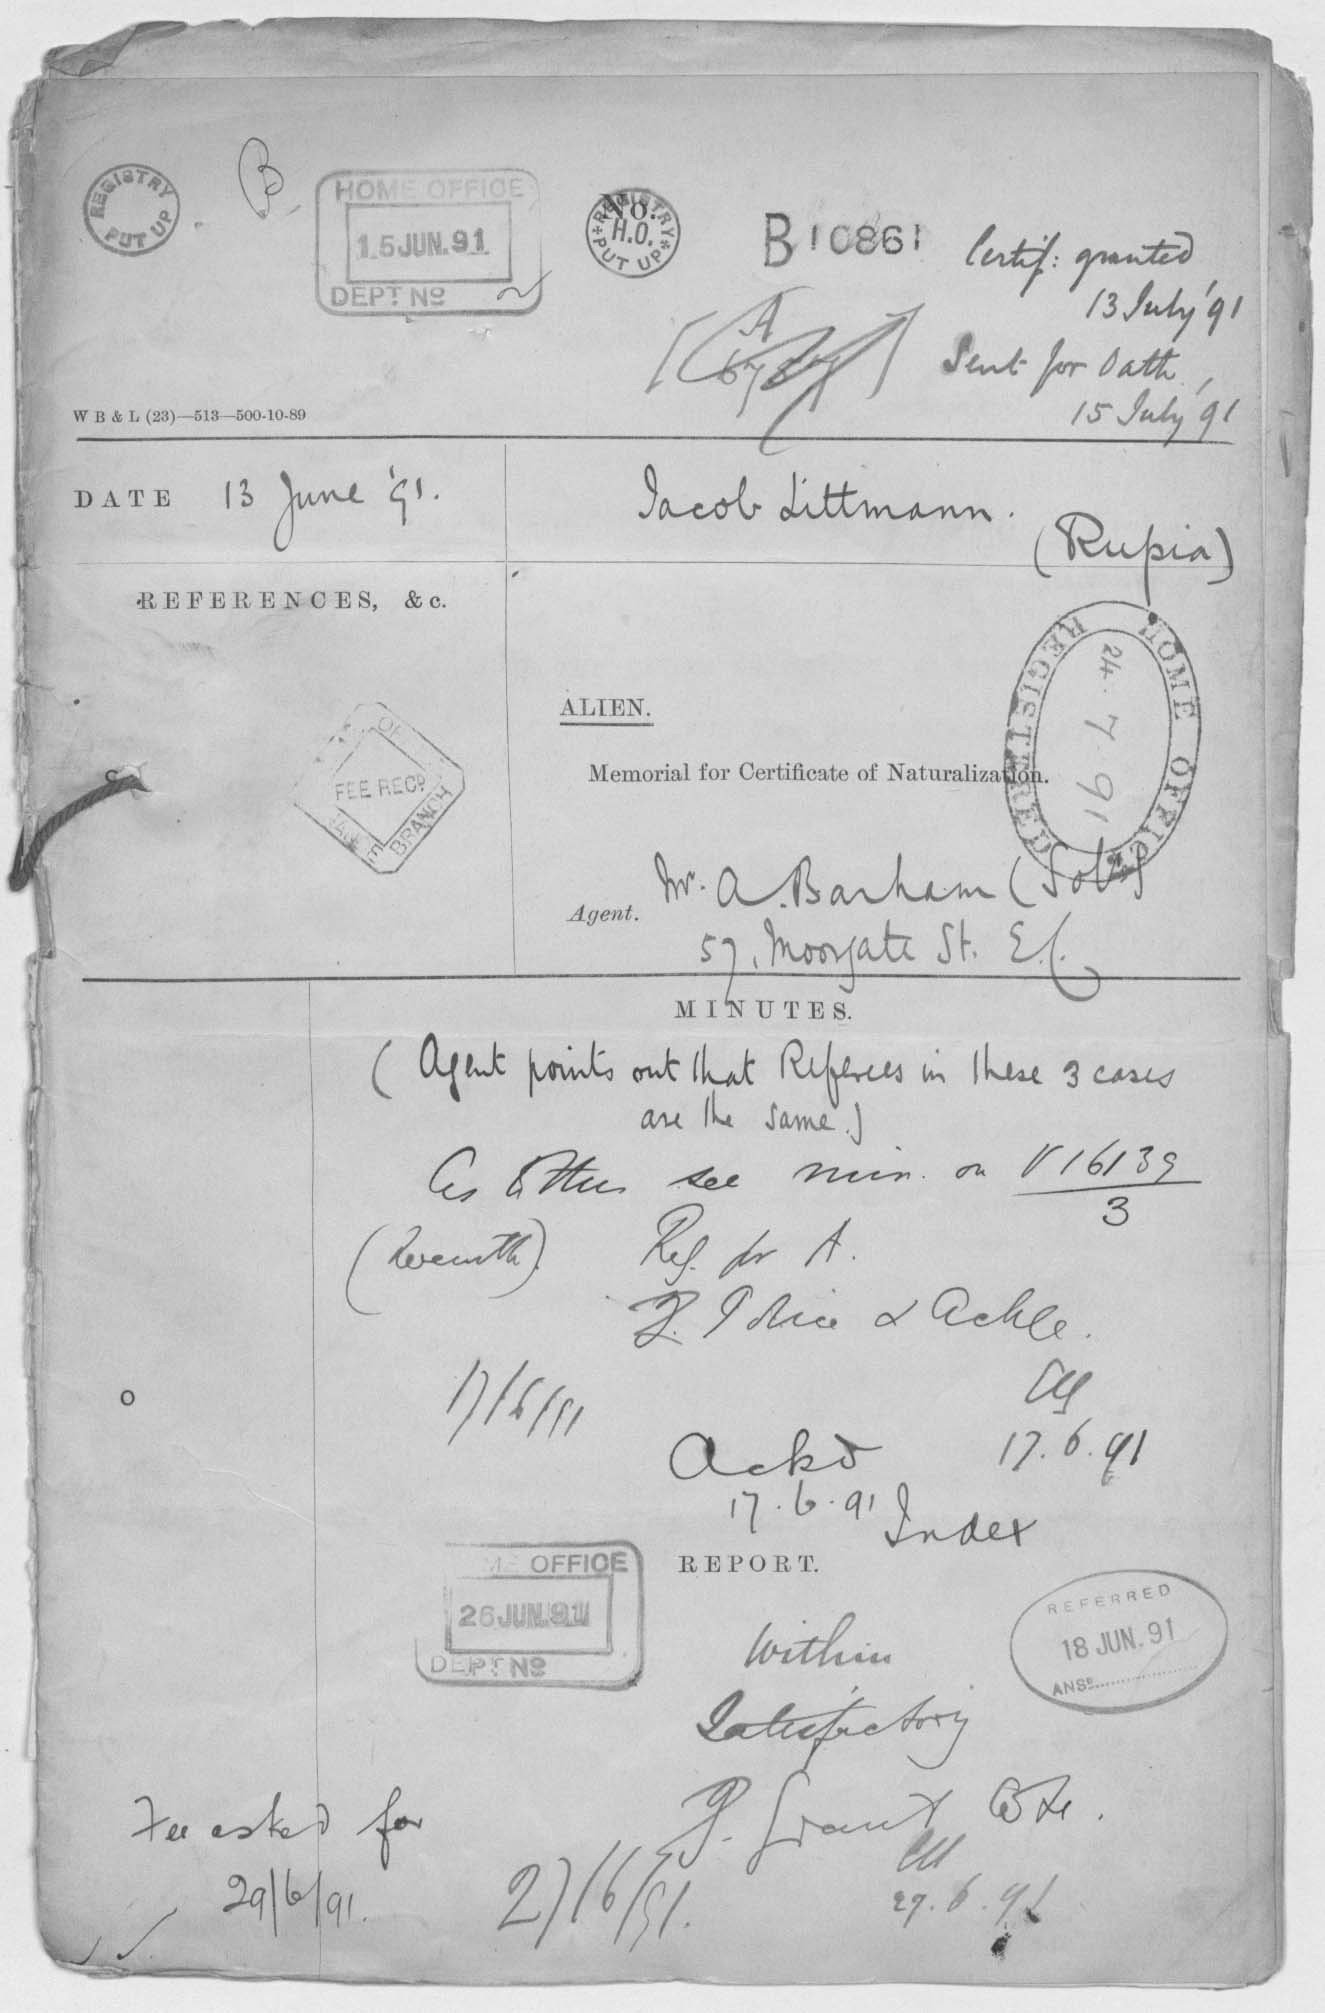 REGISTRY
PUT UP
B
HOME OFFICE
15 JUN. 91
DEPT No
No.
REGISTRY
H.O.
PUT UP
B10861
Certif: granted
13 July '91
Sent for Oath
15 July '91
[A
W B & L (23)—513—500-10-89
DATE 13 June '91.
Jacob Littmann.
(Rußia)
REFERENCES, &c.
HOME OFFICE
24.7.91
REGISTERED
FEE RECD
BRANCH
ALIEN.
Memorial for Certificate of Naturalization.
Agent.
Mr. A. Barham (Solr)
57, Moorgate St. E.C.
MINUTES.
( Agent points out that Referees in these 3 cases
are the same.)
As to this see min. on
3
Ref. for A.
? Police & Ackge.
17/6/91
17.6.91
Ackd
17.6.91
Index
REPORT.
ME OFFICE
26 JUN. 91
DEPT No
REFERRED
18 JUN. 91
ANSD
Within
Satisfactory
? Grant Cte.
27/6/91.
27.6.91
Fee asked for
29/6/91.